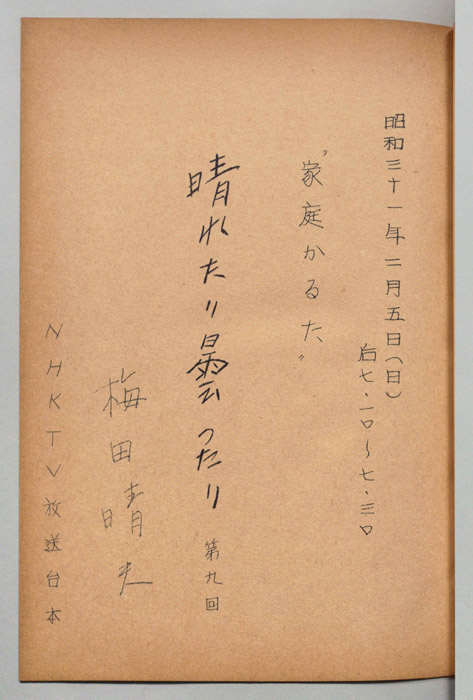 昭和三十一年二月五日(日)
后七・一〇~七・三〇
"家庭かるた"
晴れたり曇ったり 第九回
梅田晴夫
NHKTV放送台本